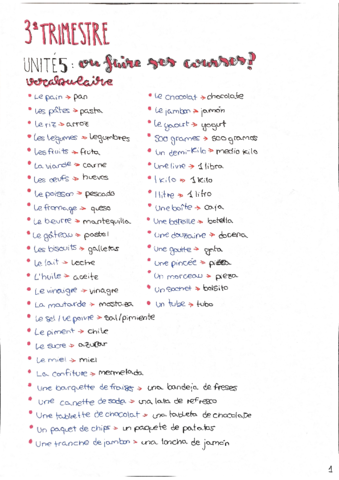 3º TRIMESTRE
UNITÉ 5: où faire ses courses?
vocabulaire
* Le pain → pan
* Les pâtes → pasta
* Le riz → arroz
* Les légumes → legumbres
* Les fruits → fruta
* La viande → carne
* Les œufs → huevos
* Le poisson → pescado
* Le fromage → queso
* Le beurre → mantequilla
* Le gâteau → pastel
* Les biscuits → galletas
* Le lait → leche
* L'huile → aceite
* Le vinaigre → vinagre
* La moutarde → mostaza
* Le sel / Le poivre → sal/pimiente
* Le piment → chile
* Le sucre → azúcar
* Le miel → miel
* La confiture → mermelada
* Une barquette de fraises → una bandeja de freses
* Une canette de soda → una lata de refresco
* Une tablette de chocolat → una tableta de chocolate
* Un paquet de chips → un paquete de patatas
* Une tranche de jambon → una loncha de jamón
* Le chocolat → chocolate
* Le jambon → jamón
* Le yaourt → yogurt
* 500 grames → 500 gramos
* Un demi-kilo → medio kilo
* Une livre → 1 libra
* 1 kilo → 1 kilo
* 1 litre → 1 litro
* Une boîte → caja
* Une bouteille → botella
* Une douzaine → docena
* Une goutte → gota
* Une pincée →
* Un morceau → pieza
* Un sachet → bolsito
* Un tube → tubo
1